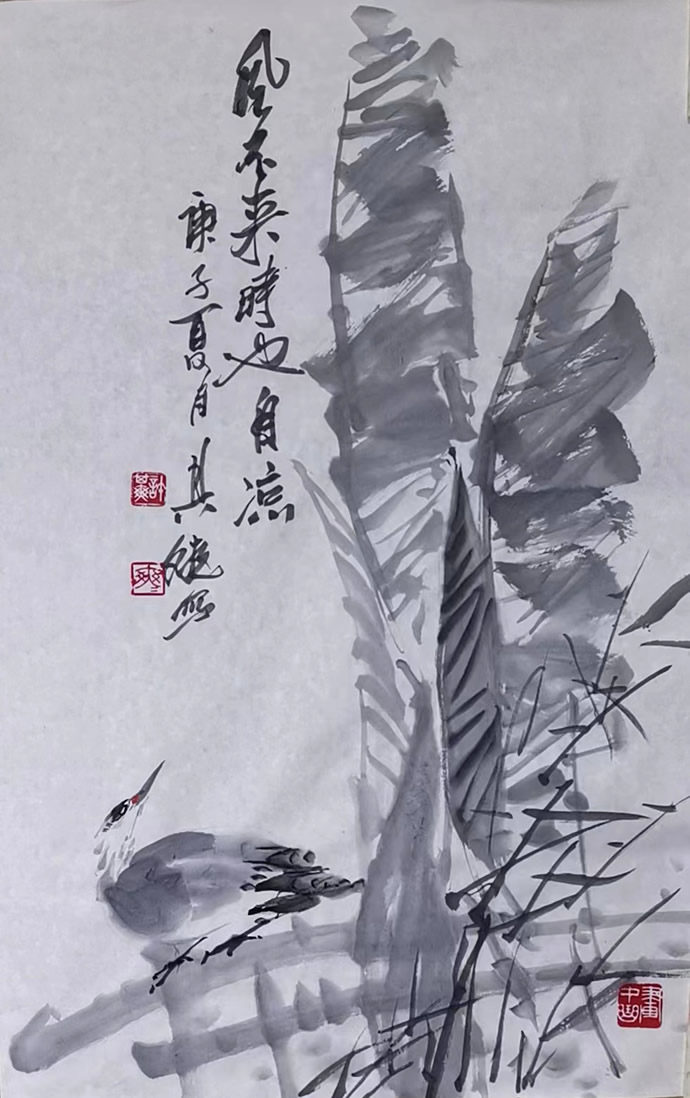 風不來時也自涼
庚子夏月其